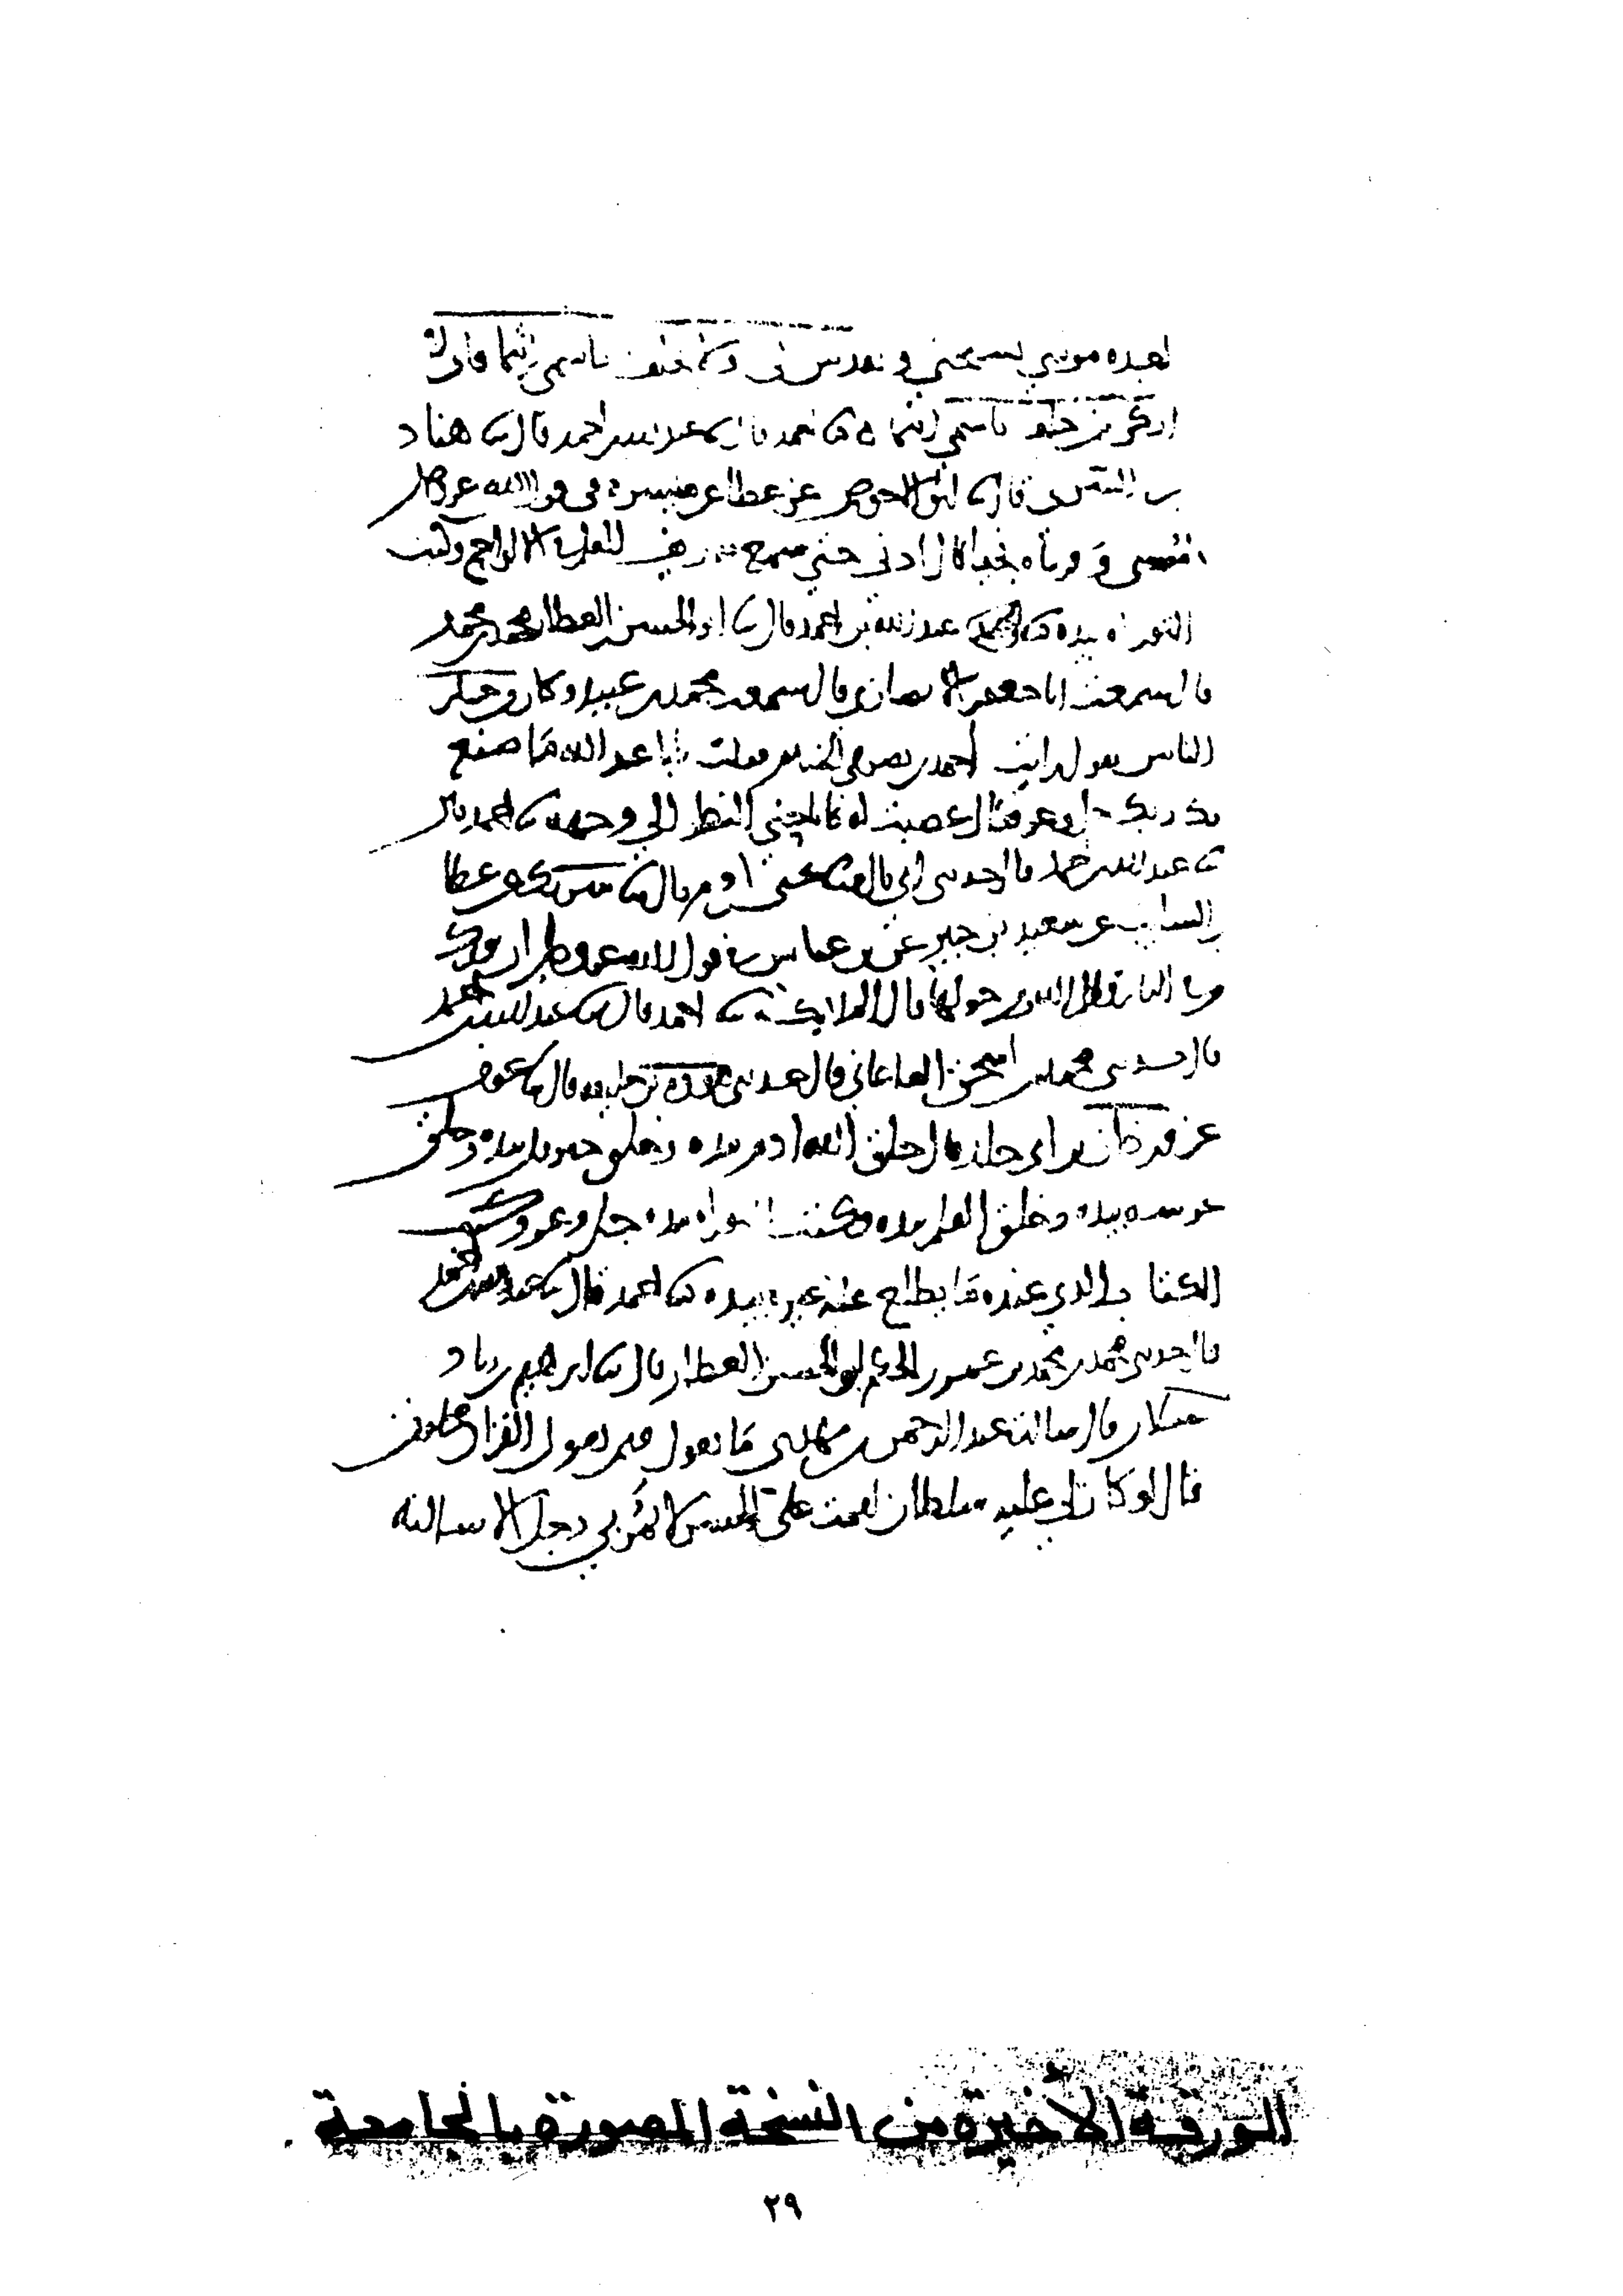 لعبده موسى يسبحني ويقدسني ولا تحلف باسمي اثما فاني لا
ازكي من حلف باسمي اثما ثنا احمد قال ثنا عبد الله بن احمد قال ثنا هناد
بن السري قال ثنا ابو الاحوص عن عطا عن ميسرة في قول الله عز وجل
وقربناه نجيا قال ادني حتى سمع صريف القلم في الالواح وكتب
التوراه بيده ثنا احمد ثنا عبد الله بن احمد قال ثنا ابو الحسن العطار محمد بن محمد
قال سمعت ابا جعفر الانصاري قال سمعت محمد بن عبيد وكان من خيار
الناس يقول رايت احمد بن نصر في النوم فقلت يا با عبد الله ما صنع
بك ربك جل وعز قال غضبت له فاباحني النظر الى وجهه ثنا احمد قال
ثنا عبد الله بن احمد قال حدثني ابي قال ثنا يحيى بن ادم قال ثنا شريك عن عطا
بن السايب عن سعيد بن جبير عن بن عباس في قول الله عز وجل ان بورك
من في النار قال الله ومن حولها قال الملايكة ثنا احمد قال ثنا عبد الله بن احمد
قال حدثني محمد بن اسحق الصاغاني قال حدثني هوذة بن خليفة قال ثنا عوف
عن وردان بن ابي خالد قال خلق الله ادم بيده وخلق جبريل بيده وخلق
عرشه بيده وخلق القلم بيده وكتب التوراه بيده جل وعز وكتب
الكتاب الذي عنده ما يطلع عليه غيره بيده ثنا احمد قال ثنا عبد الله بن احمد
قال حدثني محمد بن محمد بن عمر بن الحكم ابو الحسن العطار قال ثنا ابراهيم بن زياد
سبلان قال سالت عبد الرحمن بن مهدي ما تقول فيمن يقول القران مخلوق
قال لو كان لي عليه سلطان لقمت على الجسر لا يمر بي رجل الا سالته
الورقة الأخيرة من النسخة المصورة بالجامعة .
٢٩